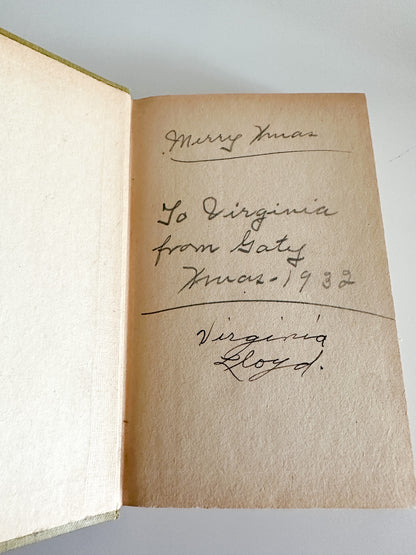 Merry Xmas
To Virginia
from Gaty
Xmas-1932
Virginia
Lloyd.